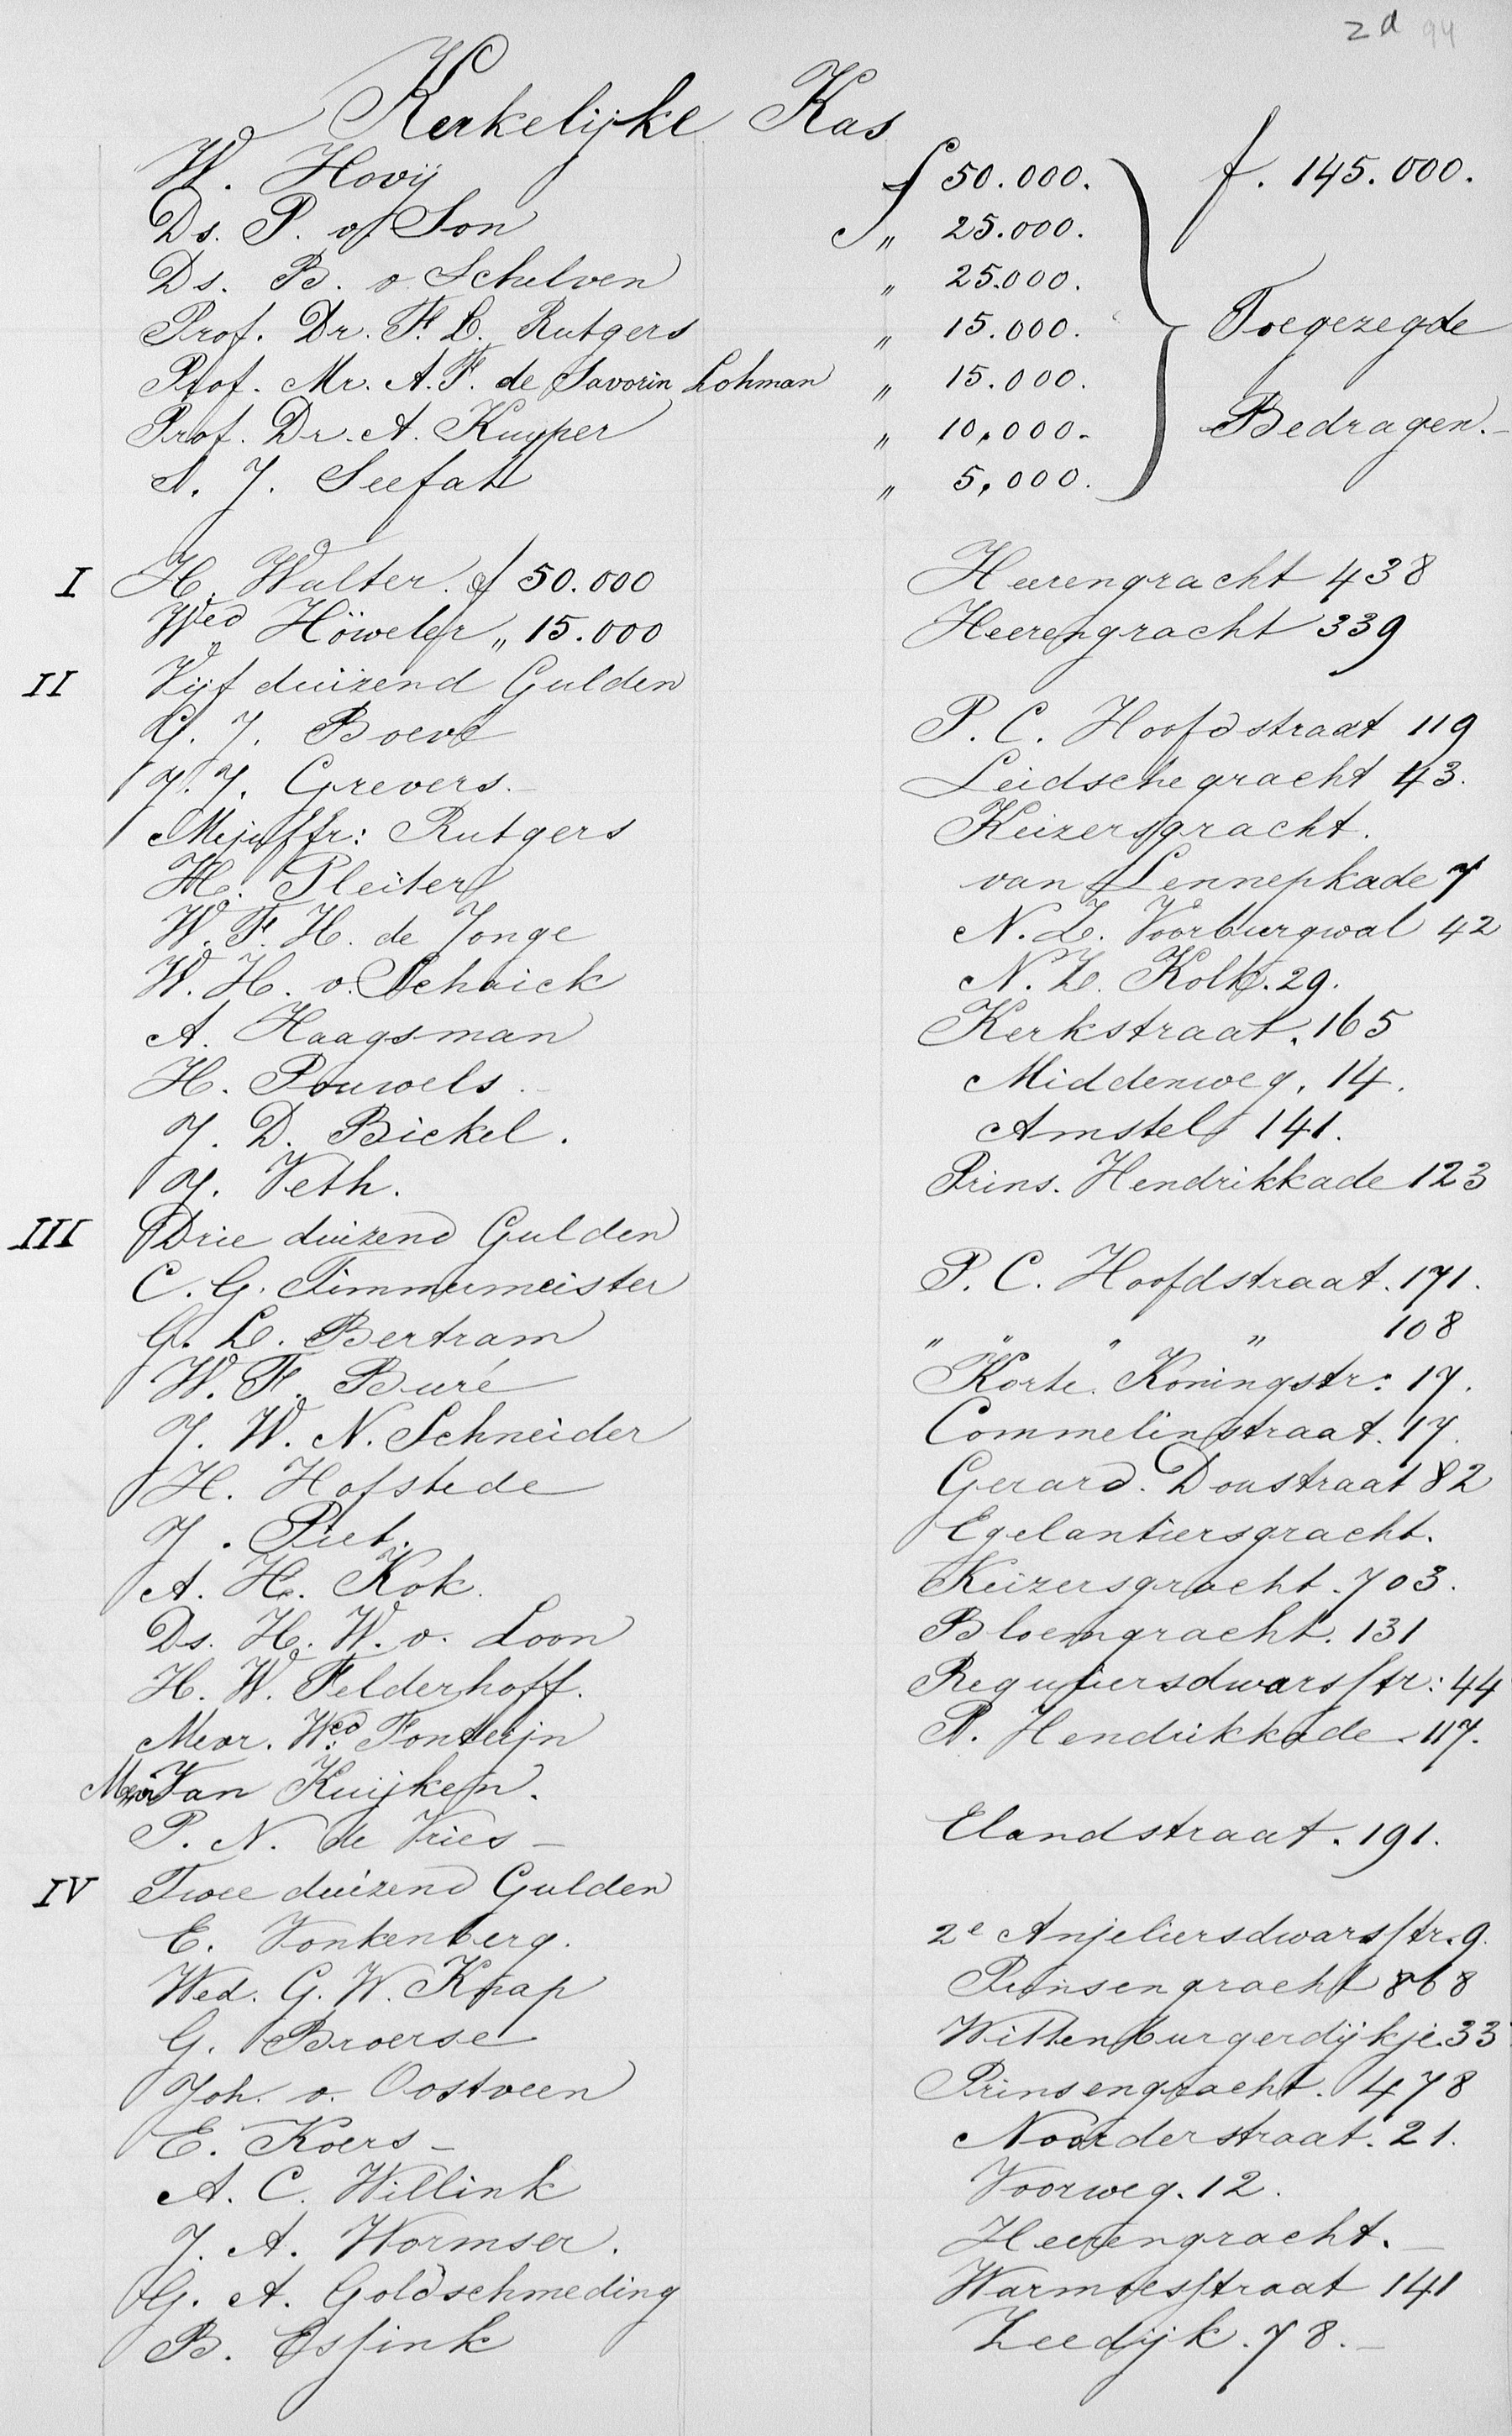 2d 94
Kerkelijke Kas
W. Hovij f 50.000. f. 145.000.
Ds. P. v. Son „ 25.000.
Ds. B. v Schelven „ 25.000.
Prof. Dr. F. L. Rutgers „ 15.000. Toegezegde
Prof. Mr. A. F. de Savorin Lohman „ 15.000.
Prof. Dr. A. Kuyper „ 10,000. Bedragen.
A. J. Seefat „ 5,000.
I H. Walter. f 50.000 Heerengracht 438
Wed Höweler „ 15.000 Heerengracht 339
II Vijf duizend Gulden
G. J. Boevé P. C. Hoofdstraat 119
J. J. Grevers. Leidschegracht 43.
Mejuffr: Rutgers Keizersgracht.
H. Pleiter van Lennepkade 7
W. F. H. de Jonge N. Z. Voorburgwal 42
W. H. v. Schaick N. Z. Kolk. 29.
A. Haagsman Kerkstraat. 165
H. Pouwels. Middenweg. 14.
J. D. Bickel. Amstel 141.
J. Veth. Prins. Hendrikkade 123
III Drie duizend Gulden
C. G. Timmermeister P. C. Hoofdstraat. 171.
G. L. Bertram „ „ „ „ 108
W. F. Buré Korte. Koningstr: 17.
J. W. N. Schneider Commelinstraat. 17.
H. Hofstede Gerard. Doustraat 82
J. Piet. Egelantiersgracht.
A. H. Kok. Keizersgracht. 703.
Ds. H. W. v. Loon Bloemgracht. 131
H. W. Felderhoff. Reguliersdwarsstr: 44
Mevr. Wed. Fonteijn P. Hendrikkade. 117.
Mevr Van Kuijken.
P. N. de Vries Elandstraat. 191.
IV Twee duizend Gulden
E. Vonkenberg. 2e Anjeliersdwarsstr. 9.
Wed. G. W. Knap Prinsengracht 868
G. Broerse Wittenburgerdijkje. 33
Joh. v. Oostveen Prinsengracht. 478
E. Koers Noorderstraat. 21.
A. C. Willink Voorweg. 12.
J. A. Wormser. Heerengracht.
G. A. Goldschmeding Warmoesstraat 141
B. Essink Zeedijk. 78.